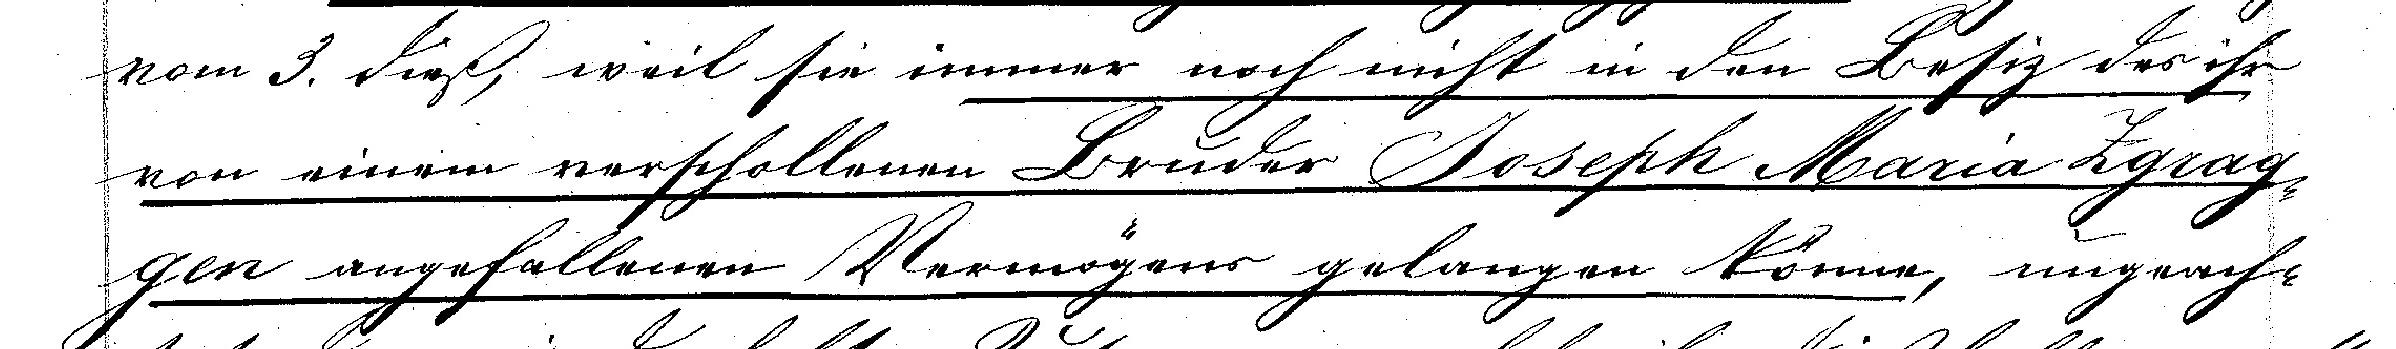 vom 3. dieß, weil sie immer noch nicht in den Besiz des ihr
von einem verschollenen Bruder Joseph Maria Zgrag-
gen angefallenen Vermögens gelangen könne, ungeach-